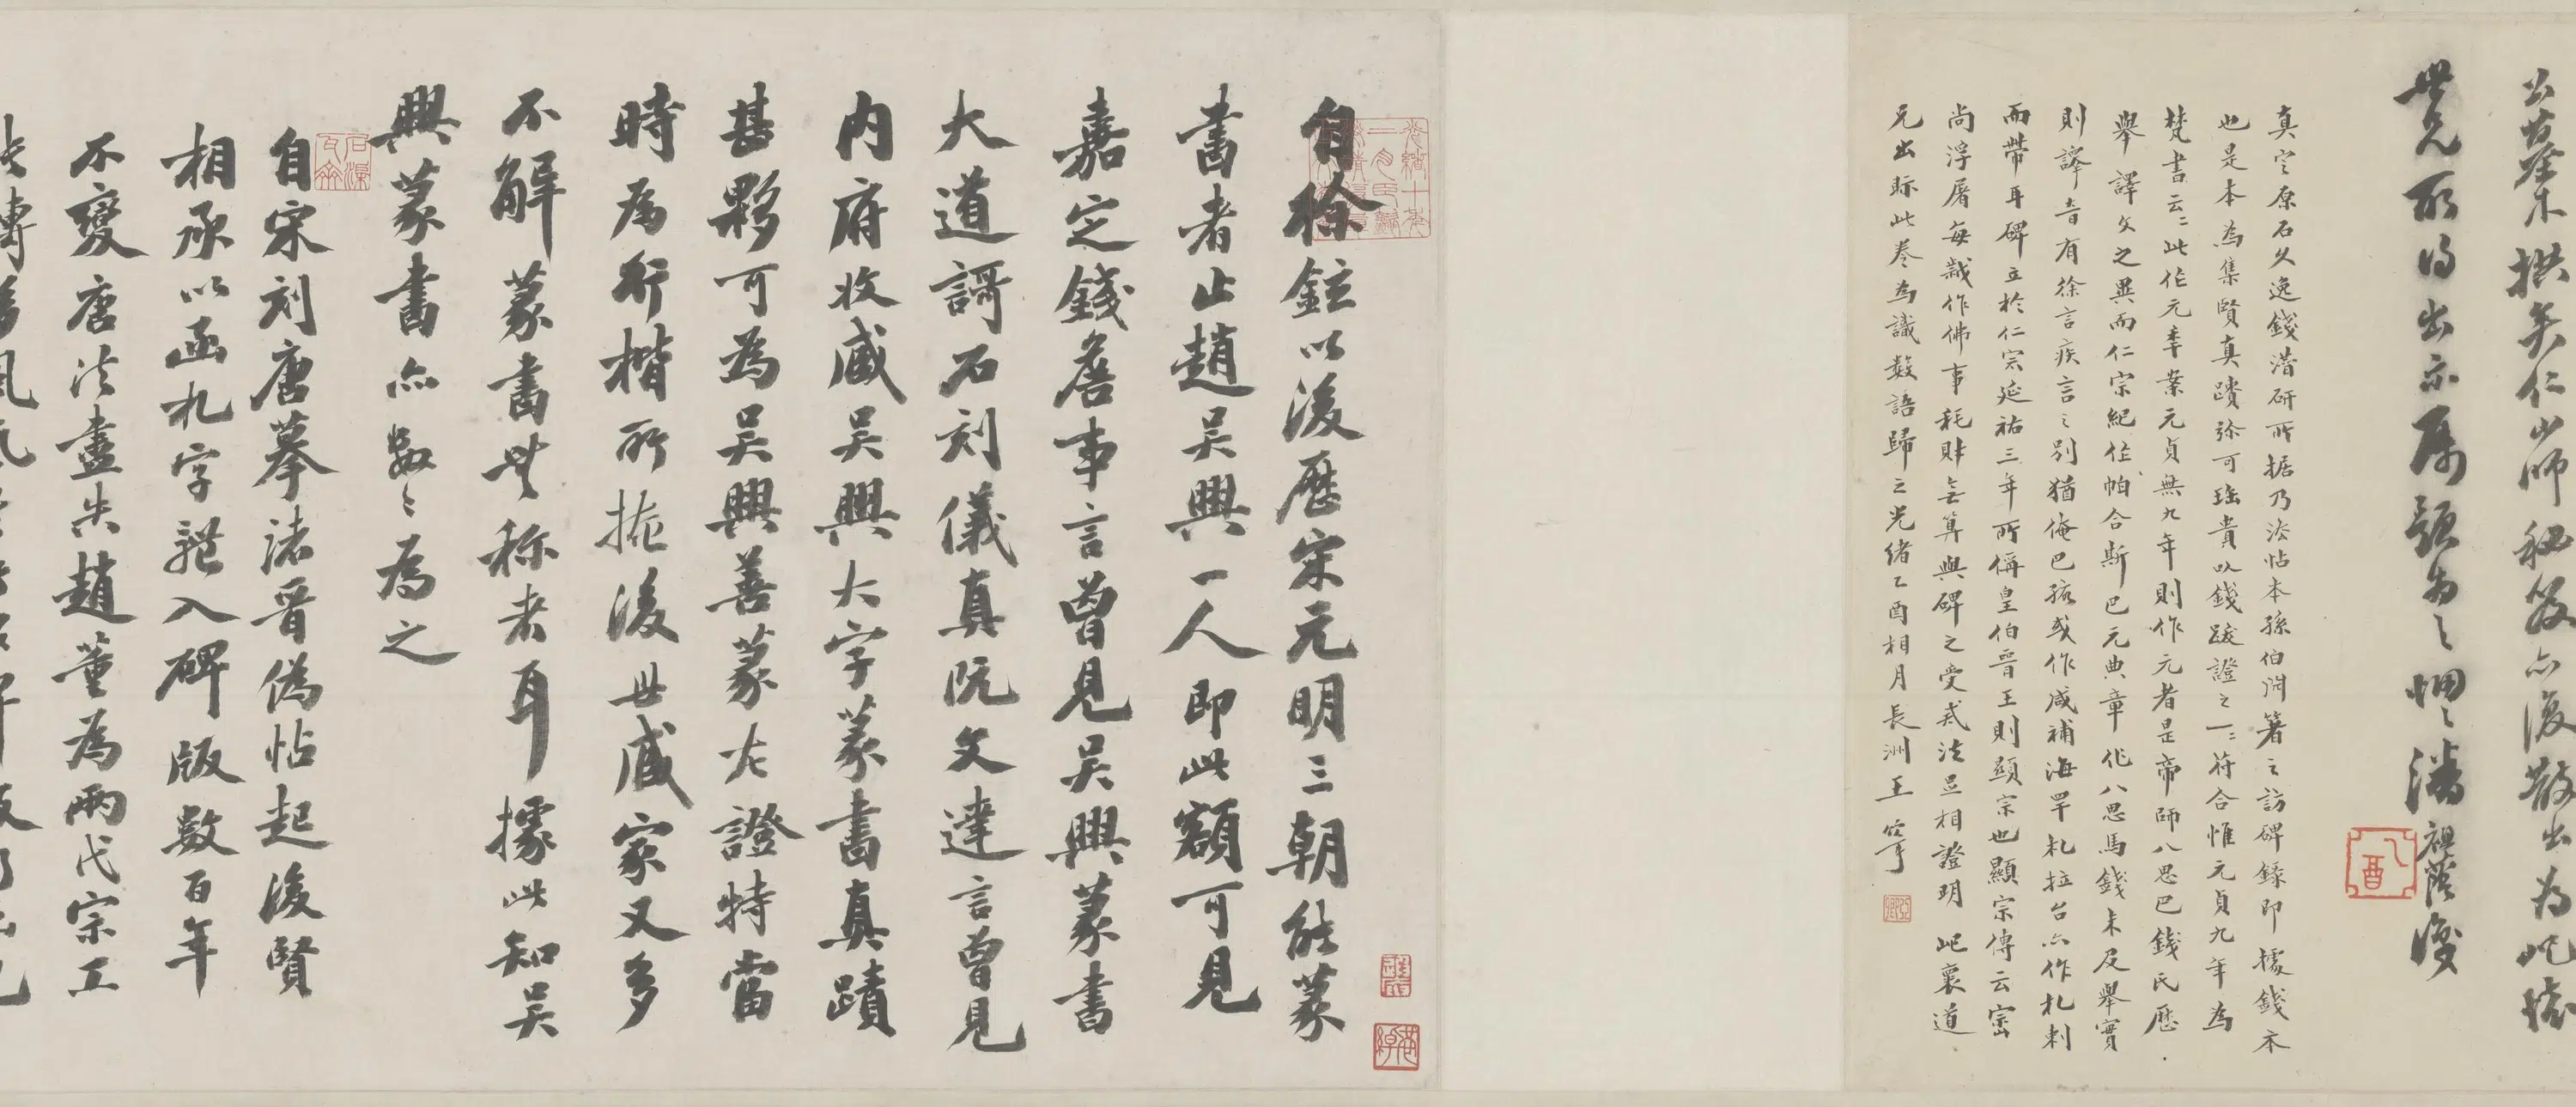 公墓木拱矣仁山師秘笈亦復散出為屺懷
世兄所得出示属題為之惘惘潘祖蔭後
真定原石久逸錢潛研所据乃法帖本孫伯淵箸之訪碑錄即據錢本
也是本為集賢真蹟弥可珤貴以錢跋證之一二符合惟元貞九年為
梵書云云此作元季案元貞無九年則作元者是帝師八思巴錢氏歷
舉譯文之異而仁宗紀作帕合斯巴元典章作八思馬錢未及舉實
則譯音有徐言疾言之別猶俺巴孩或作咸補海罕札拉台亦作札剌
而帶耳碑立於仁宗延祐三年所偁皇伯晋王則顯宗也顯宗傳云崇
尚浮屠每歲作佛事耗財無算與碑之受戒法正相證明屺襄道
兄出眎此卷為識數語歸之光緒乙酉相月長洲王
八酉
自徐鉉以後歷宋元明三朝能篆
書者止趙吳興一人即此額可見
嘉定錢詹事言曾見吳興篆書
大道謌石刻儀真阮文達言曾見
内府收藏吳興大字篆書真蹟
甚夥可為吳興善篆左證特當
時為行楷所掩後世咸家又多
不解篆書無称者耳據此知吳
興篆書亦數數為之
自宋刻唐摹諸晋偽帖起後賢
相承以函札字體入碑版數百年
不變唐法盡失趙董為兩代宗工